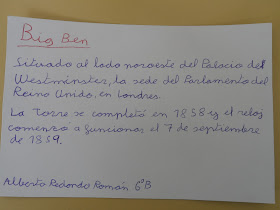 Big Ben
Situado al lado noroeste del Palacio del
Westminster, la sede del Parlamento del
Reino Unido, en Londres.
La Torre se completó en 1858 y el reloj
comenzo a funcionar el 7 de septiembre
de 1859.
Alberto Redondo Román 6ºB